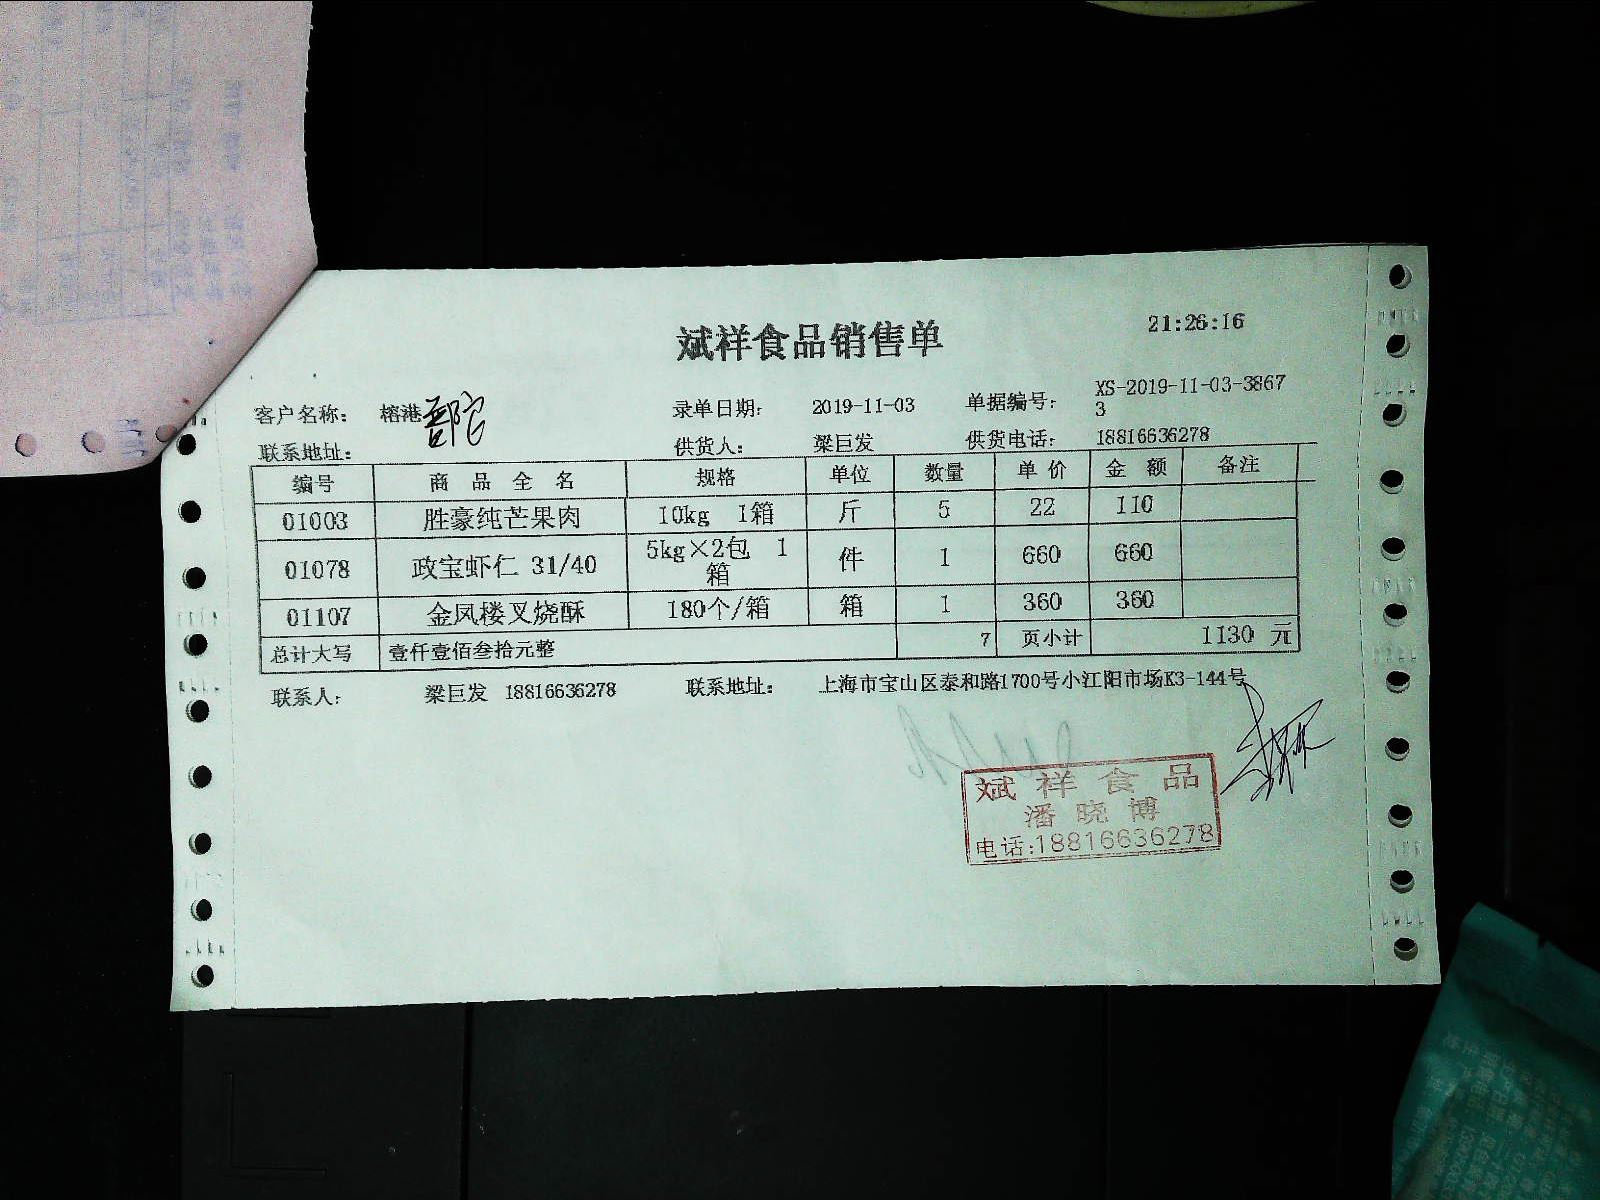 斌祥食品销售单
21:26:16
客户名称： 榕港 录单日期： 2019-11-03 单据编号： XS-2019-11-03-3867
3
联系地址： 供货人： 梁巨发 供货电话： 18816636278
编号 商 品 全 名 规格 单位 数量 单 价 金 额 备注
01003 胜豪纯芒果肉 10kg 1箱 斤 5 22 110
01078 政宝虾仁 31/40 5kg×2包 1
箱 件 1 660 660
01107 金凤楼叉烧酥 180个/箱 箱 1 360 360
总计大写 壹仟壹佰叁拾元整 7 页小计 1130 元
联系人： 梁巨发 18816636278 联系地址： 上海市宝山区泰和路1700号小江阳市场K3-144号
斌祥食品
潘晓博
电话:18816636278